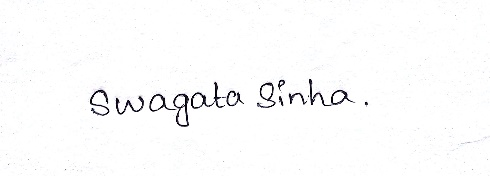 Swagata Sinha.